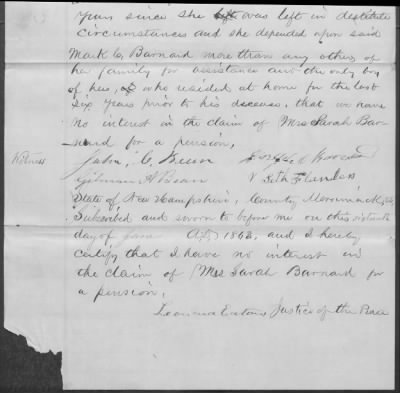 years since she was left in destitute
circumstances and she depended upon said
Mark C. Barnard more than any others of
her family for assistance and the only boy
of hers, who resided at home for the last
six years prior to his decease, that we have
no interest in the claim of Mrs Sarah Bar-
nard for a pension,
Witness
John, C,
Gilman
& Seth Flanders
State of New Hampshire, County Merrimack, ss
Subscribed and sworn to before me on this sixteenth
day of June A.D. 1863, and I hereby
certify that I have no interest in
the claim of Mrs Sarah Barnard for
a pension,
Eaton, Justice of the Peace